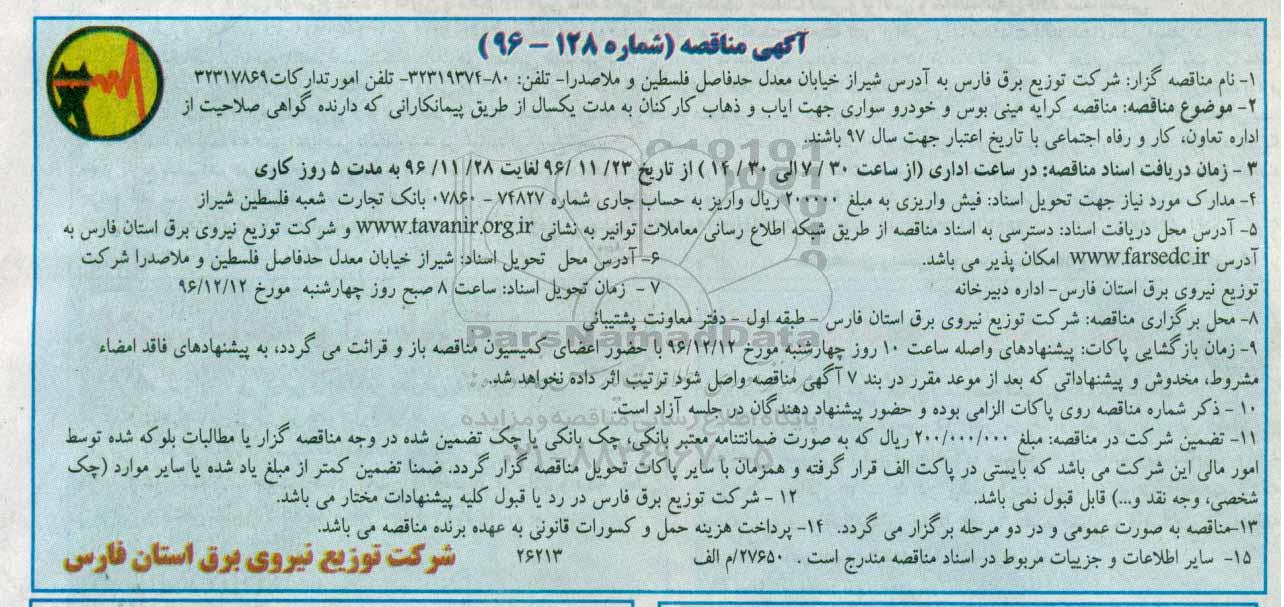 آگهی مناقصه (شماره ۱۲۸ – ۹۶)
۱- نام مناقصه گزار: شرکت توزیع برق فارس به آدرس شیراز خیابان معدل حدفاصل فلسطین و ملاصدرا- تلفن: ۸۰-۳۲۳۱۹۳۷۴- تلفن امورتدارکات۳۲۳۱۷۸۶۹
۲- موضوع مناقصه: مناقصه کرایه مینی بوس و خودرو سواری جهت ایاب و ذهاب کارکنان به مدت یکسال از طریق پیمانکارانی که دارنده گواهی صلاحیت از
اداره تعاون، کار و رفاه اجتماعی با تاریخ اعتبار جهت سال ۹۷ باشند.
۳ - زمان دریافت اسناد مناقصه: در ساعت اداری (از ساعت ۳۰ / ۷ الی ۳۰ / ۱۴ ) از تاریخ ۲۳/ ۱۱ /۹۶ لغایت ۲۸/ ۱۱/ ۹۶ به مدت ۵ روز کاری
۴- مدارک مورد نیاز جهت تحویل اسناد: فیش واریزی به مبلغ ۲۰۰۰۰۰ ریال واریز به حساب جاری شماره ۷۴۸۲۷ - ۰۷۸۶۰ بانک تجارت شعبه فلسطین شیراز
۵- آدرس محل دریافت اسناد: دسترسی به اسناد مناقصه از طریق شبکه اطلاع رسانی معاملات توانیر به نشانی www.tavanir.org.ir و شرکت توزیع نیروی برق استان فارس به
آدرس www.farsedc.ir امکان پذیر می باشد. ۶- آدرس محل تحویل اسناد: شیراز خیابان معدل حدفاصل فلسطین و ملاصدرا شرکت
توزیع نیروی برق استان فارس- اداره دبیرخانه ۷ - زمان تحویل اسناد: ساعت ۸ صبح روز چهارشنبه مورخ ۹۶/۱۲/۱۲
۸- محل برگزاری مناقصه: شرکت توزیع نیروی برق استان فارس – طبقه اول - دفتر معاونت پشتیبانی
۹- زمان بازگشایی پاکات: پیشنهادهای واصله ساعت ۱۰ روز چهارشنبه مورخ ۹۶/۱۲/۱۲ با حضور اعضای کمیسیون مناقصه باز و قرائت می گردد، به پیشنهادهای فاقد امضاء
مشروط، مخدوش و پیشنهاداتی که بعد از موعد مقرر در بند ۷ آگهی مناقصه واصل شود ترتیب اثر داده نخواهد شد.
۱۰ - ذکر شماره مناقصه روی پاکات الزامی بوده و حضور پیشنهاد دهندگان در جلسه آزاد است.
۱۱- تضمین شرکت در مناقصه: مبلغ ۲۰۰/۰۰۰/۰۰۰ ریال که به صورت ضمانتنامه معتبر بانکی، چک بانکی یا چک تضمین شده در وجه مناقصه گزار یا مطالبات بلوکه شده توسط
امور مالی این شرکت می باشد که بایستی در پاکت الف قرار گرفته و همزمان با سایر پاکات تحویل مناقصه گزار گردد. ضمنا تضمین کمتر از مبلغ یاد شده یا سایر موارد (چک
شخصی، وجه نقد و...) قابل قبول نمی باشد. ۱۲ - شرکت توزیع برق فارس در رد یا قبول کلیه پیشنهادات مختار می باشد.
۱۳-مناقصه به صورت عمومی و در دو مرحله برگزار می گردد. ۱۴- پرداخت هزینه حمل و کسورات قانونی به عهده برنده مناقصه می باشد.
۱۵- سایر اطلاعات و جزییات مربوط در اسناد مناقصه مندرج است . ۲۷۶۵۰/م الف ۲۶۲۱۳ شرکت توزیع نیروی برق استان فارس
ParsNamadData
پایگاه اطلاع رسانی مناقصه و مزایده
۰۲۱-۸۸۳۴۹۶۷۰-۵